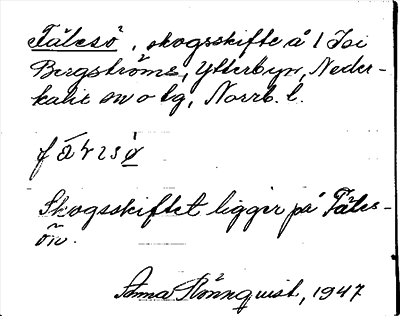 Tålesö, skogsskifte å 1 Isi
Bergströms, Ytterbyn, Neder-
kalix sn o tg, Norrb. l.
Skogsskiftet ligger på Tåles-
ön.
Anna Rönnquist, 1947